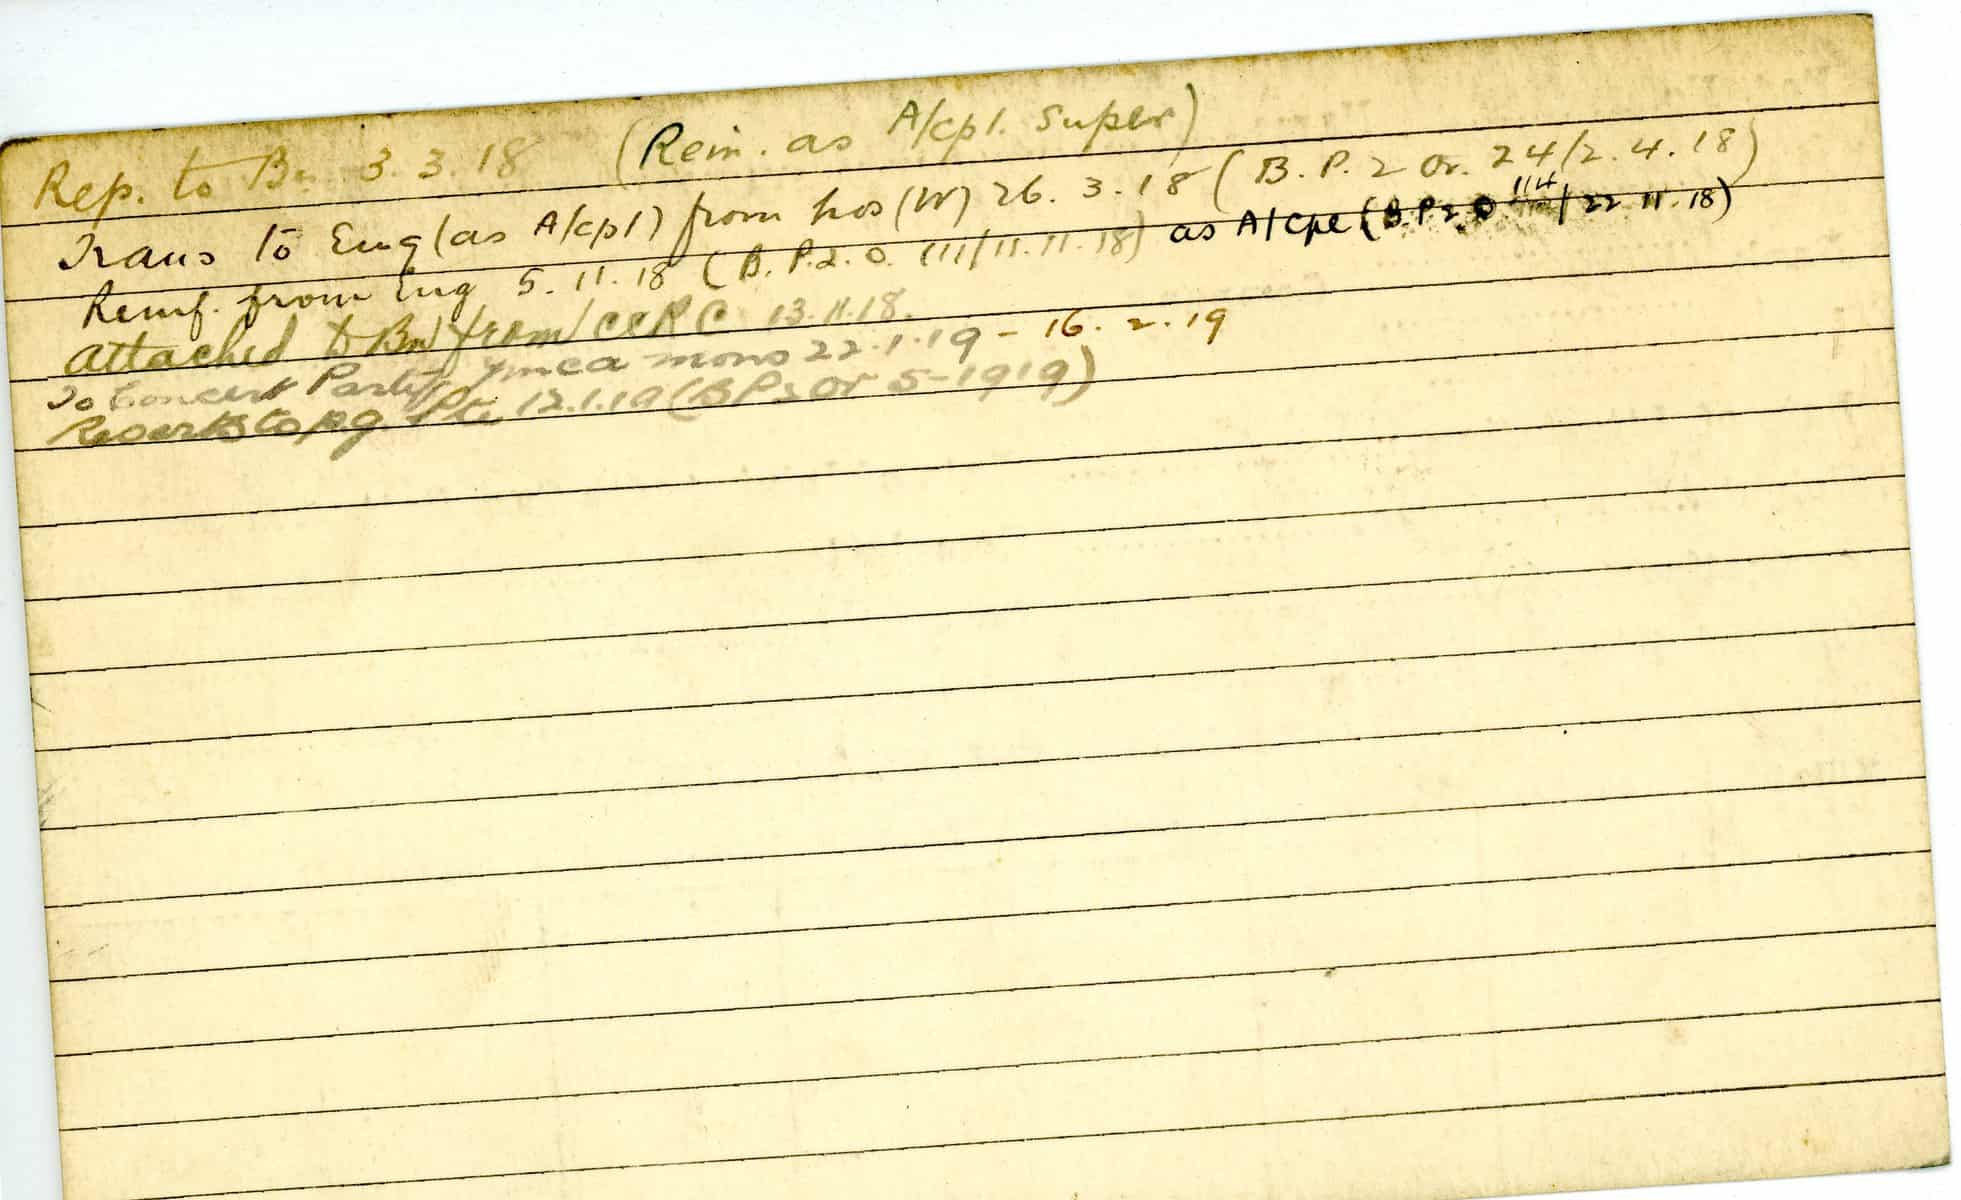 Rep. to Bn 3.3.18 (Rein. as A/cpl. Super)
Trans to Eng (as A/cpl) from hos (W) 26.3.18 (B.P.2 Or. 24/2.4.18)
Reinf. from Eng 5.11.18 (B.P.2.O. 111/11.11.18) as A/cpl (B.P.2 O 114/22 11.18)
attached to Bn from CCRC 13.11.18.
To Concert Party Ymca mons 22.1.19 - 16.2.19
Reverts to p.g. Pte 12.1.19 (B P 2 Or 5-1919)